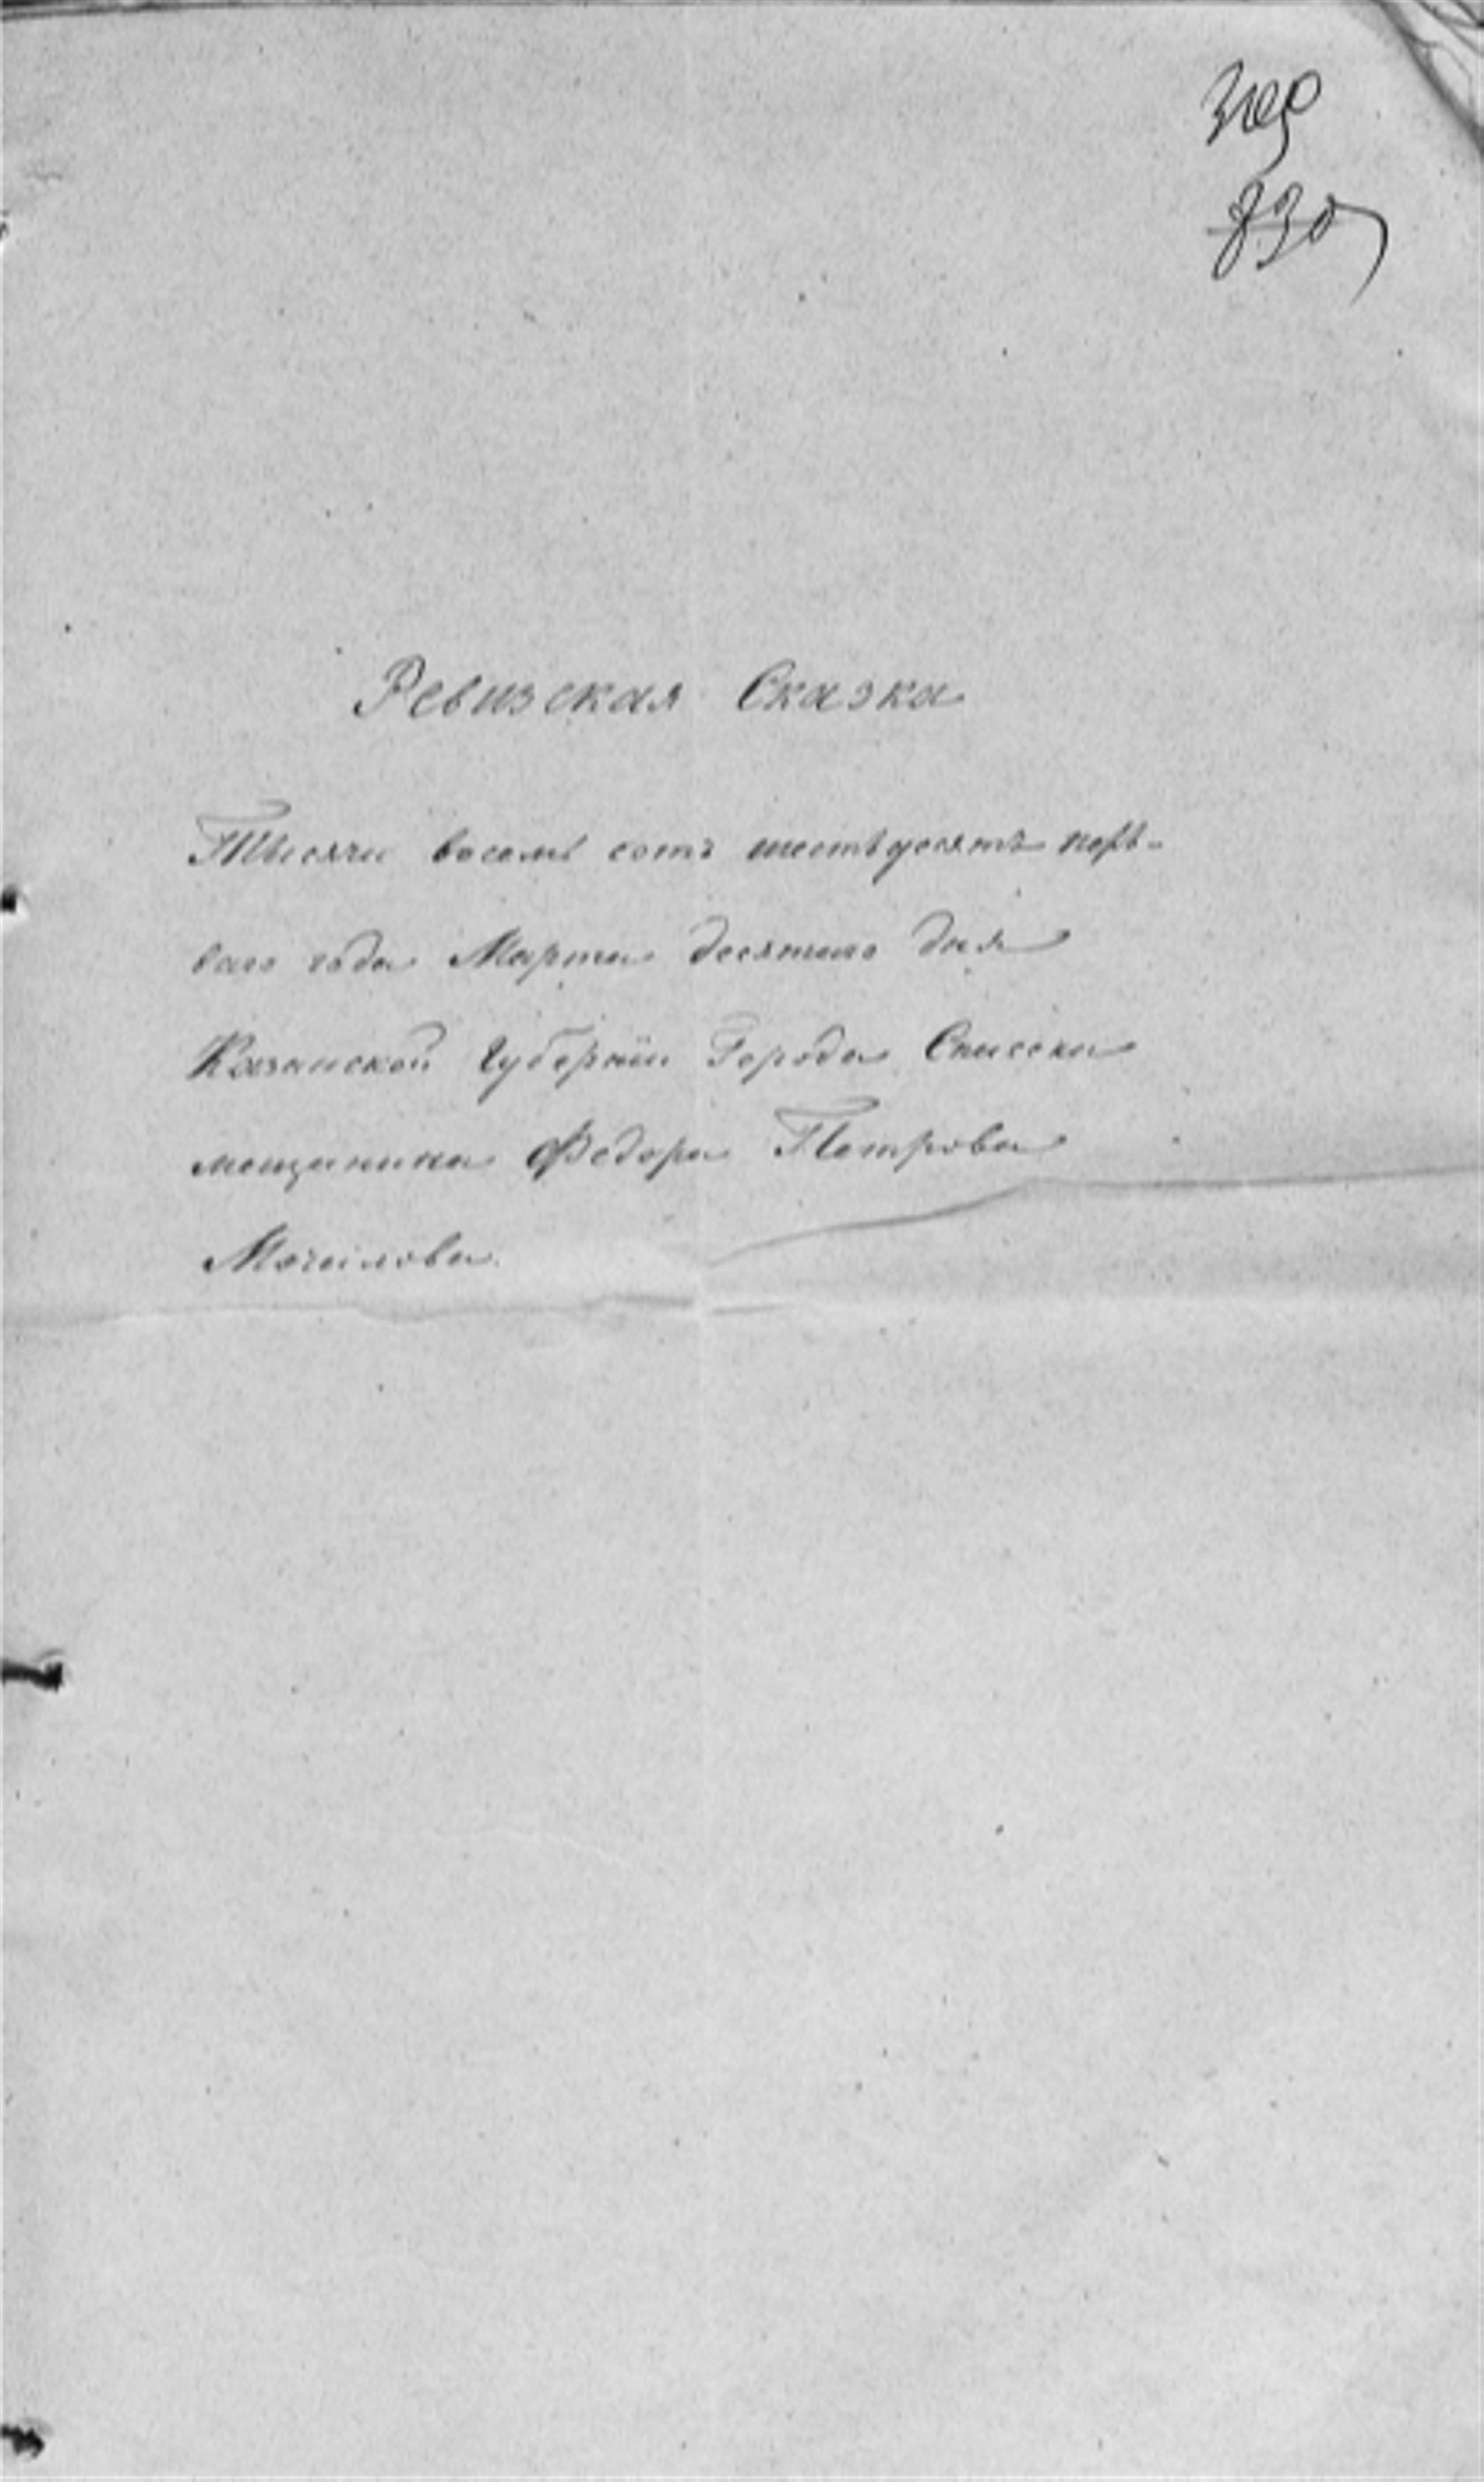 830
Ревизская Сказка
Тысячи восемь сотъ шестьдесятъ пер-
ваго года Марта десятаго дня
Казанской Губерніи Города Спасска
мещанина Федора Петрова
Мочалова.